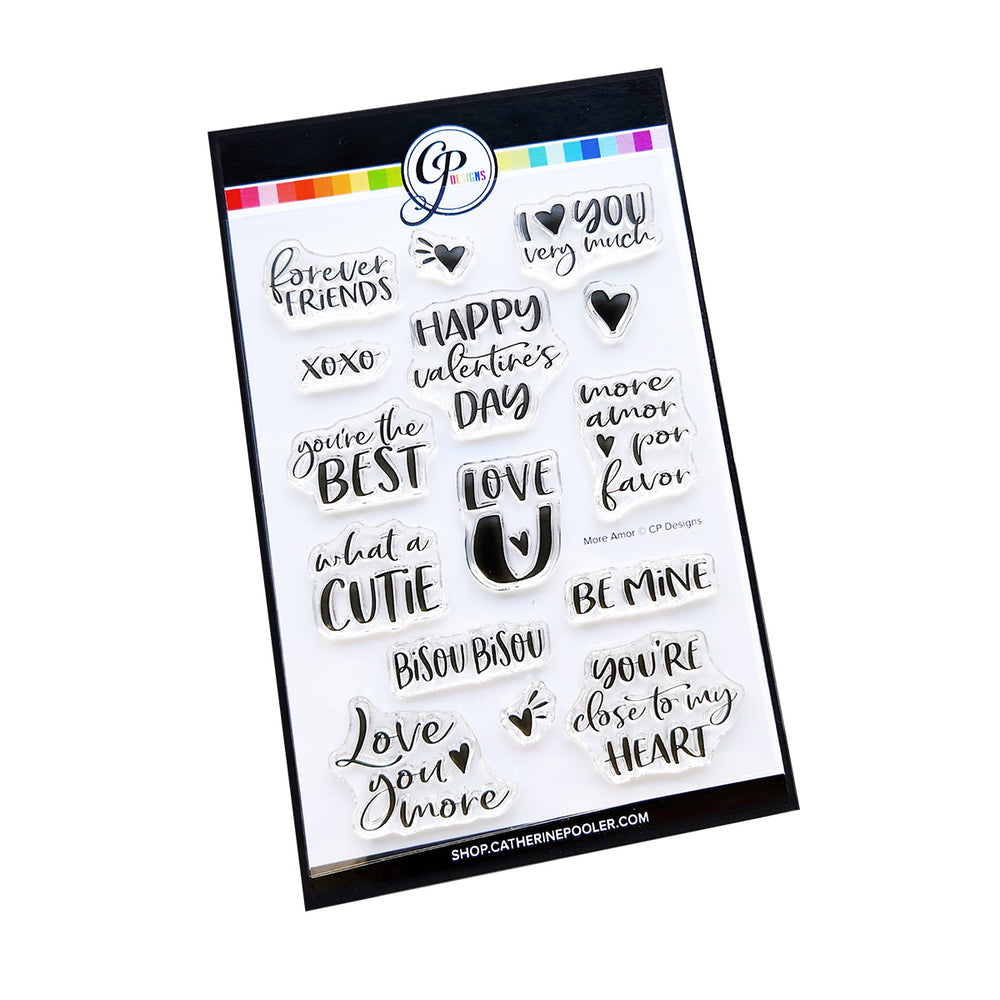 CP
DESIGNS
forever
FRIENDS
I ♥ YOU
very much
xoxo
HAPPY
valentine's
DAY
more
amor
♥ por
favor
you're the
BEST
LOVE
U
More Amor © CP Designs
what a
CUTiE
BE MiNE
BiSOU BiSOU
YOU'RE
close to my
HEART
Love
you ♥
more
SHOP.CATHERINEPOOLER.COM